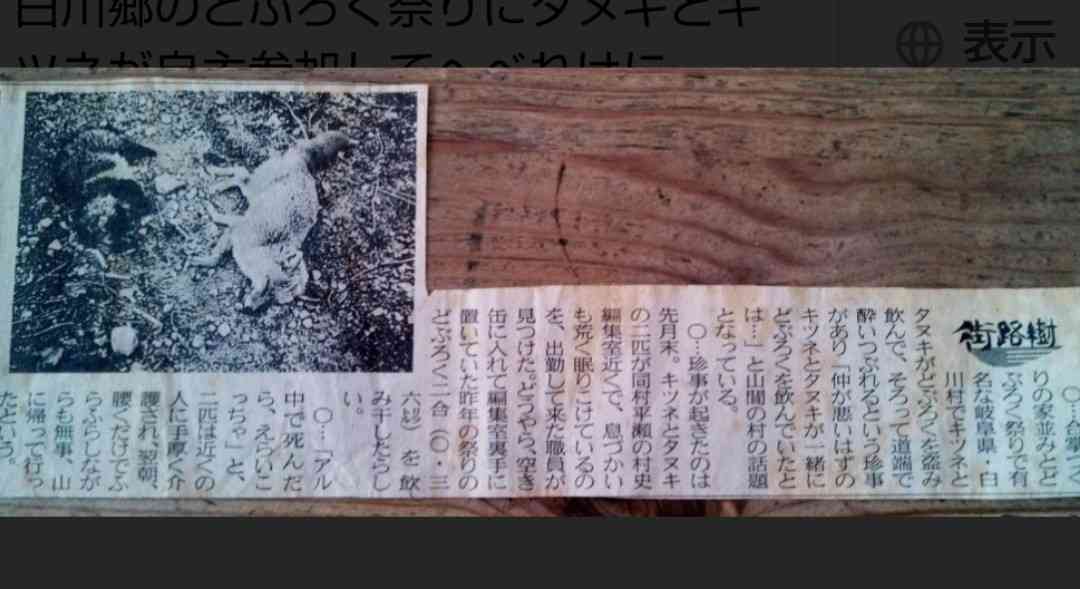 白川郷のどぶろく祭りにタヌキとキ
ツネが自主参加してへべれけに
表示
街路樹
〇…合掌づく
りの家並みとど
ぶろく祭りで有
名な岐阜県・白
川村でキツネと
タヌキがどぶろくを盗み
飲んで、そろって道端で
酔いつぶれるという珍事
があり「仲が悪いはずの
キツネとタヌキが一緒に
どぶろくを飲んでいたと
は…」と山間の村の話題
となっている。
〇…珍事が起きたのは
先月末。キツネとタヌキ
の二匹が同村平瀬の村史
編集室近くで、息づかい
も荒く眠りこけているの
を、出勤して来た職員が
見つけた。どうやら、空き
缶に入れて編集室裏手に
置いていた昨年の祭りの
どぶろく二合(〇・三
六㍑)を飲
み干したらし
い。
〇…「アル
中で死んだ
ら、えらいこ
っちゃ」と、
二匹は近くの
人に手厚く介
護され、翌朝、
腰くだけでふ
らふらしなが
らも無事、山
に帰って行っ
たという。